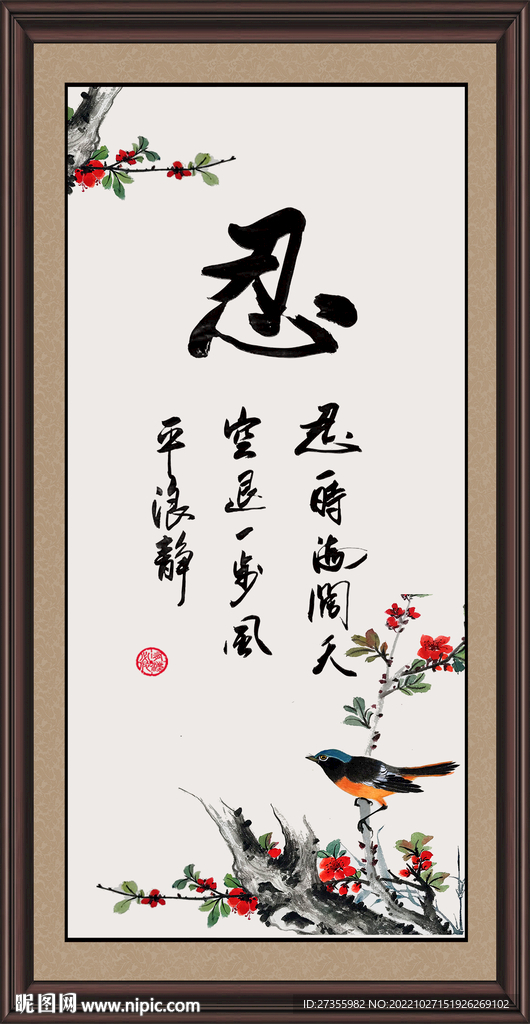 忍
忍一時海闊天
空退一步風
平浪静
昵图网 www.nipic.com
ID:27355982 NO:20221027151926269102